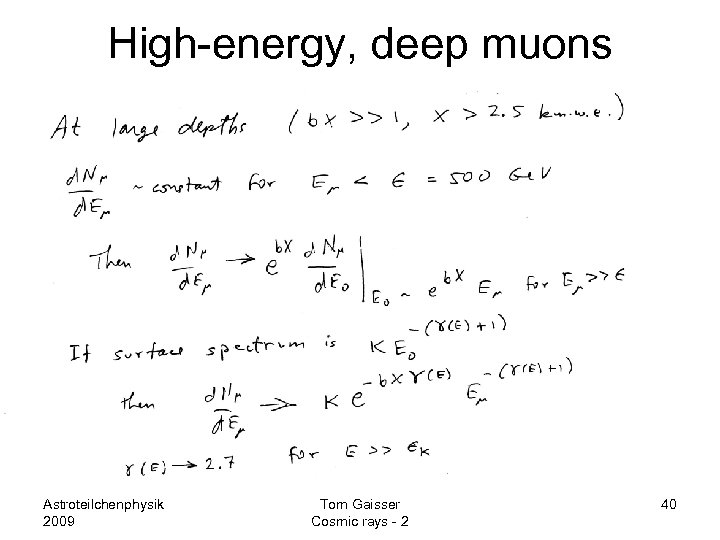 High-energy, deep muons
At large depths (bX >> 1, X > 2.5 km.w.e.)
dNμ/dEμ ~ constant for Eμ < ε = 500 GeV
Then dNμ/dEμ → e^{bX} dNμ/dE₀ |_{E₀ ~ e^{bX} Eμ} for Eμ >> ε
If surface spectrum is K E₀^{-(γ(E)+1)}
then dNμ/dEμ → K e^{-bXγ(E)} Eμ^{-(γ(E)+1)}
γ(E) → 2.7 for E >> ε_K
Astroteilchenphysik
2009
Tom Gaisser
Cosmic rays - 2
40